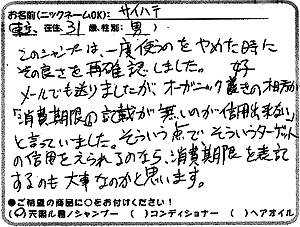 お名前(ニックネームOK): サイハテ
東京 在住、31歳、性別: 男 )
このシャンプーは、一度使うのをやめた時に
その良さを再確認しました。
メールでも送りましたが、オーガニック好きの相方が
「消費期限の記載が無いのが信用出来ない」
と言っていました。そういう点でそういうターゲット
の信用をえられるのなら、消費期限を表記
するのも大事なのかと思います。
●ご希望の商品に○をお付けください!
(○)天照ル君ノシャンプー ( )コンディショナー ( )ヘアオイル